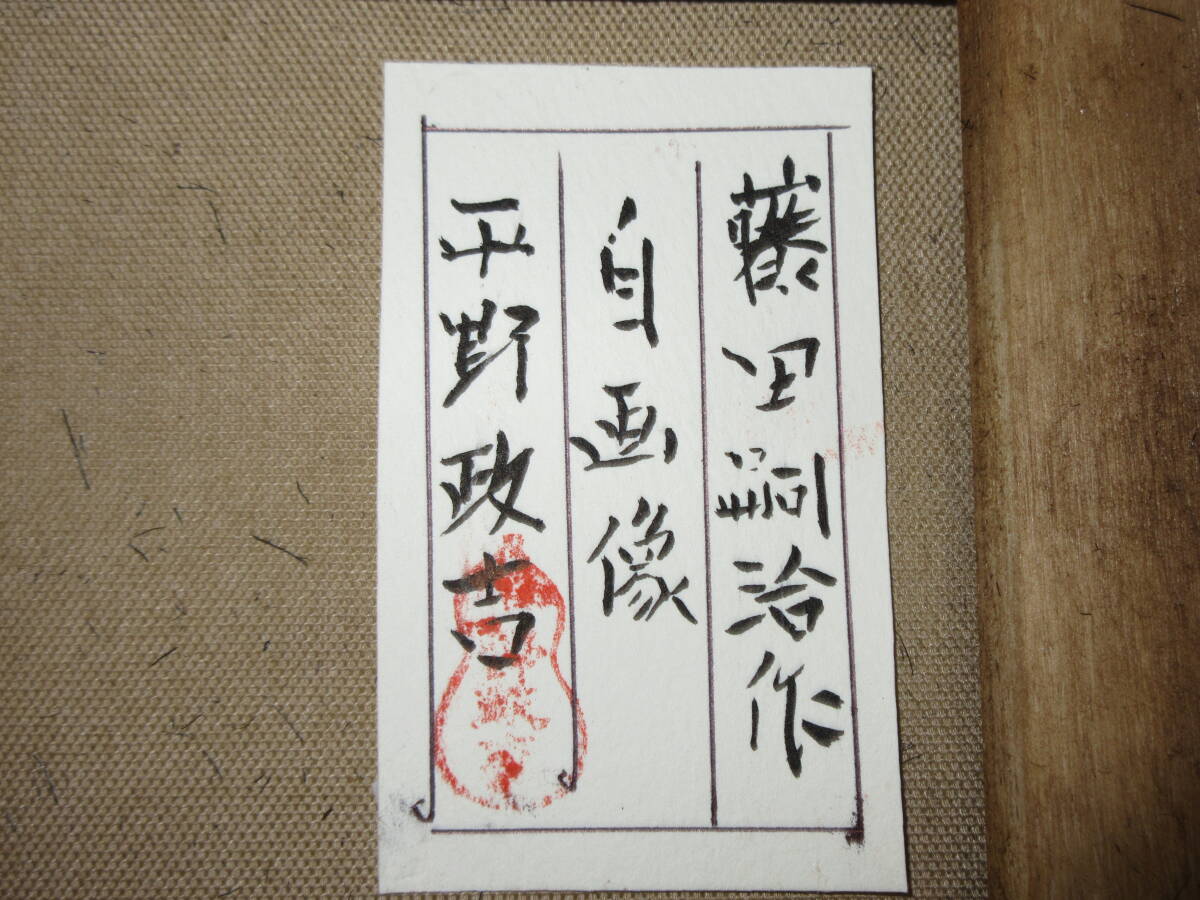 藤田嗣治作
自画像
平野政吉